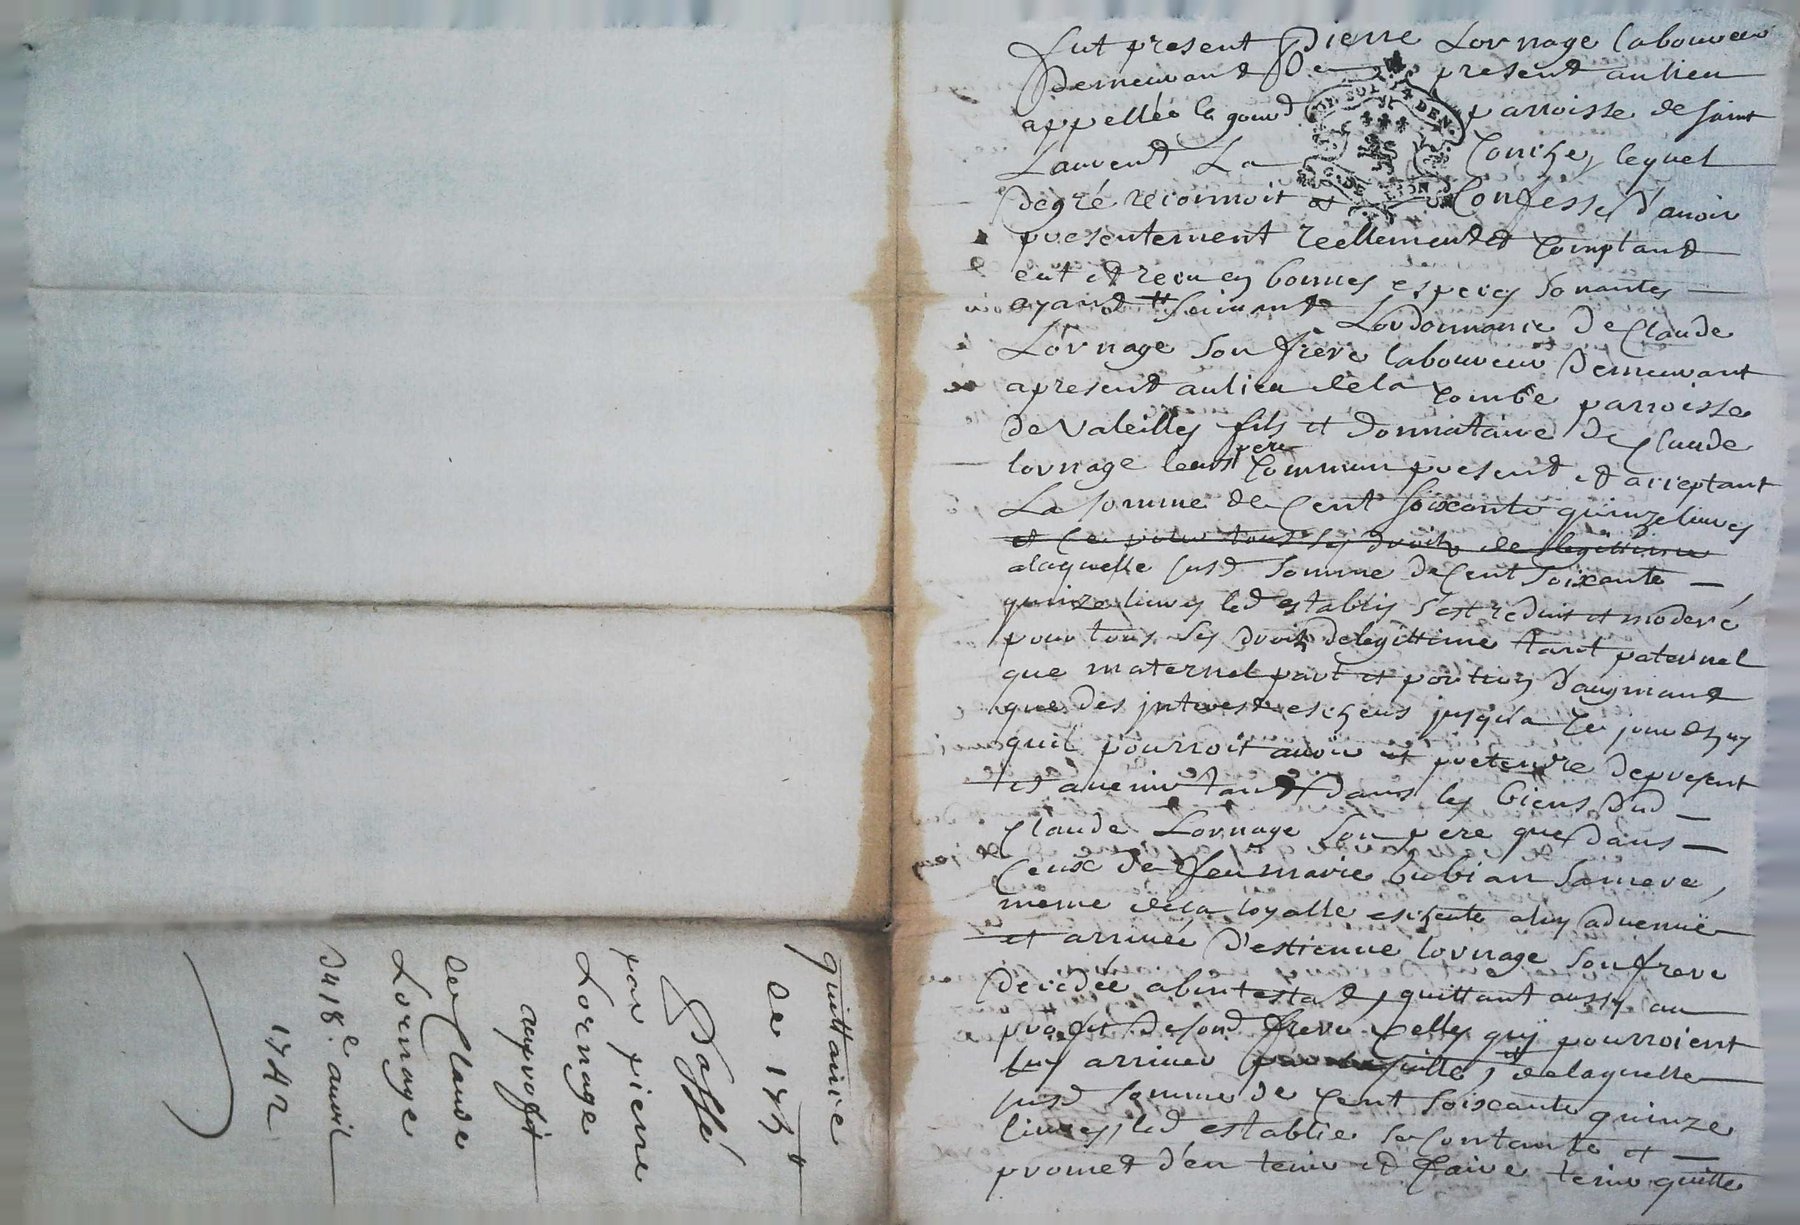 quittance
de 175#
Passé
par pierre
Lornage
au profit
de Claude
Lornage
du 18e avril
1742
fut present Pierre Lornage laboureur
demeurant De present au lieu
appellée la gour parroisse de saint
Laurent La Conche, lequel
de gré reconnoit et Confesse d'avoir
presentement reellement et Comptant
eut et receu en bonnes especes sonantes
ayant # suivant L'ordonnance de Claude
Lornage son frere laboureur demeurant
apresent au lieu de la Combe parroisse
de Valeilles fils et donnataire de Claude
lornage leur pere Commun present et acceptant
La somme de Cent soixante quinze livres
et Ce pour tous ses droits de legittime
a laquelle susd somme de Cent soixante
quinze livres led establis s'est reduit et moderé
pour tous ses droits de legittime tant paternel
que maternel part et portion d'augmant
que des jnterest escheus jusqu'a Ce jourdhuy
quil pourroit avoir et pretendre de present
et avenir tant dans les biens dud
Claude Lornage son pere que dans
Ceux de feu marie bubian sa mere,
meme de la loyalle escheute a luy advenüe
et arrivée d'estienne lornage son frere
decedée abintestat, quittant aussy au
proffit de sond frere Celles quy pourroient
luy arriver de laquelle
susd somme de Cent soixante quinze
livres, led establie se Contante et
promet d'en tenir et faire tenir quitte